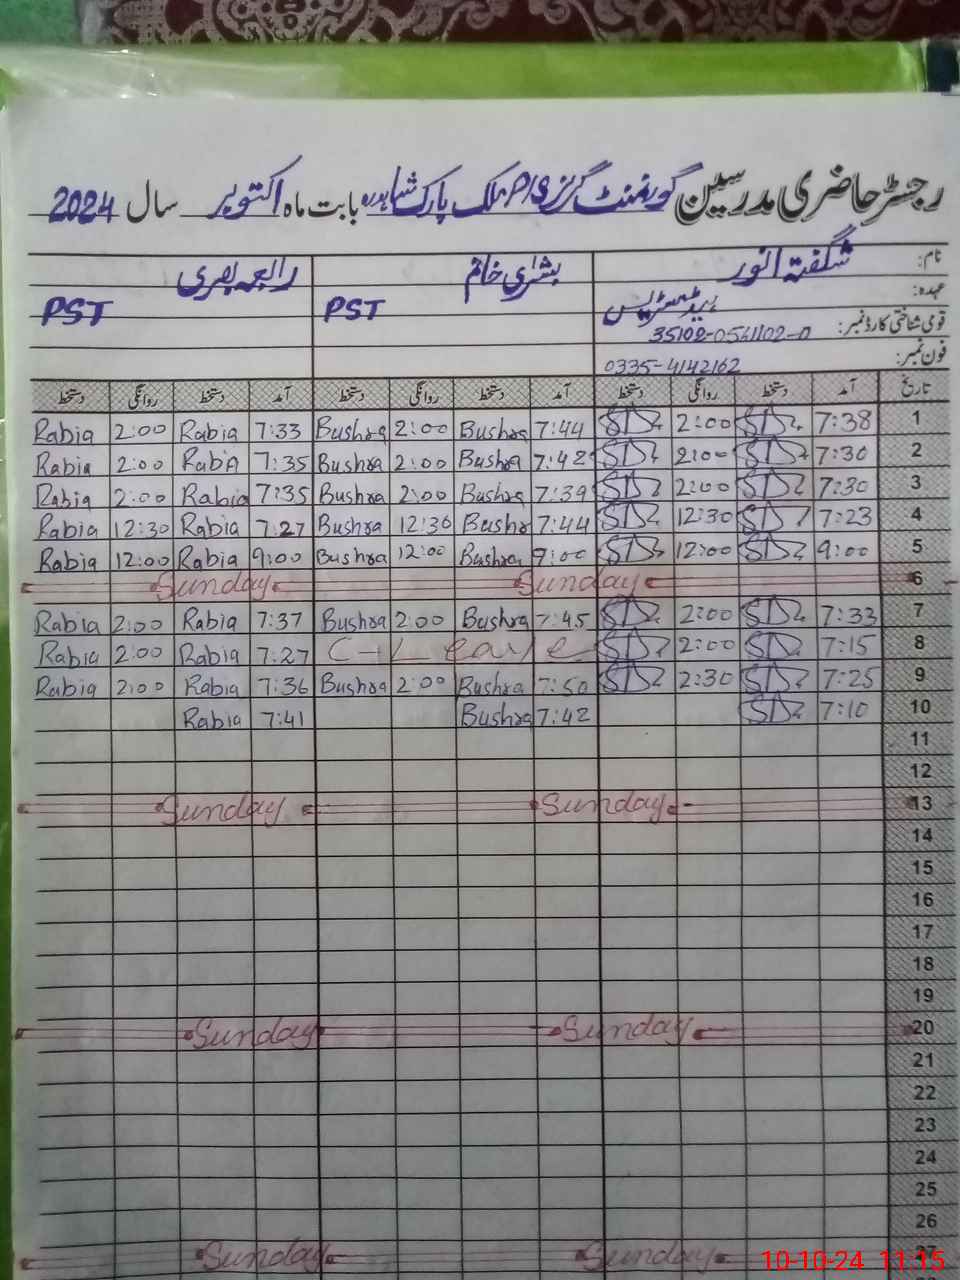 رجسٹر حاضری مدرسین گورنمنٹ گرلز P/S ملک پارک شاہدرہ بابت ماہ اکتوبر سال 2024
نام: شگفتہ انور بشریٰ خانم رابعہ بصری
عہدہ: ہیڈمسٹریس PST PST
قومی شناختی کارڈ نمبر: 35102-0561102-0
فون نمبر: 0335-4142162
تاریخ آمد دستخط روانگی دستخط آمد دستخط روانگی دستخط آمد دستخط روانگی دستخط
1 7:38 2:00 7:44 Bushra 2:00 Bushra 7:33 Rabia 2:00 Rabia
2 7:30 2:00 7:42 Bushra 2:00 Bushra 7:35 Rabia 2:00 Rabia
3 7:30 2:00 7:39 Bushra 2:00 Bushra 7:35 Rabia 2:00 Rabia
4 7:23 12:30 7:44 Bushra 12:30 Bushra 7:27 Rabia 12:30 Rabia
5 9:00 12:00 9:00 Bushra 12:00 Bushra 9:00 Rabia 12:00 Rabia
6 Sunday Sunday
7 7:33 2:00 7:45 Bushra 2:00 Bushra 7:37 Rabia 2:00 Rabia
8 7:15 2:00 C-Leave 7:27 Rabia 2:00 Rabia
9 7:25 2:30 7:50 Bushra 2:00 Bushra 7:36 Rabia 2:00 Rabia
10 7:10 7:42 Bushra 7:41 Rabia
11
12
13 Sunday Sunday
14
15
16
17
18
19
20 Sunday Sunday
21
22
23
24
25
26
27 Sunday Sunday
10-10-24 11:15